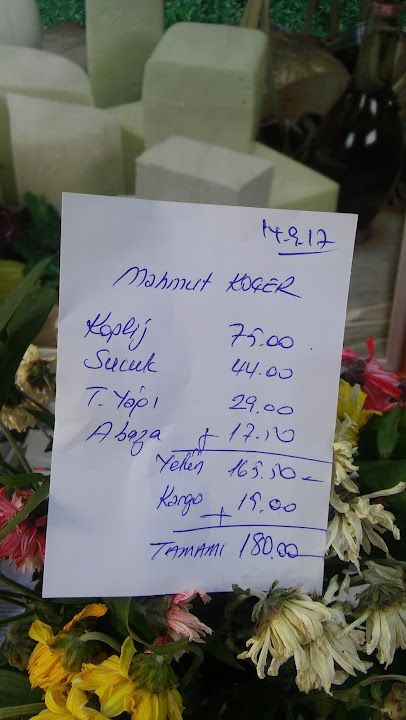 14.9.17
Mahmut KOÇER
75.00
Sucuk 44.00
T. Yağı 29.00
Abaza + 17.50
Yekün 165.50
Kargo + 15.00
TAMAMI 180.00